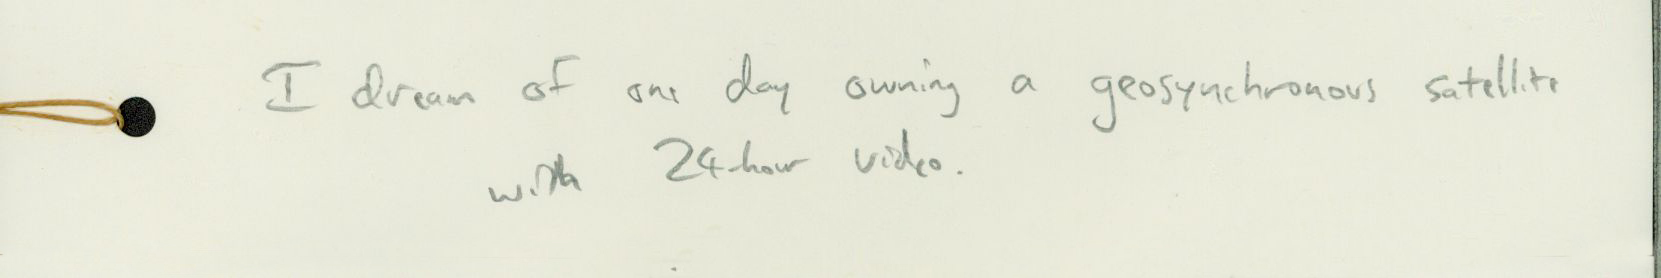 I dream of one day owning a geosynchronous satellite
with 24-hour video.